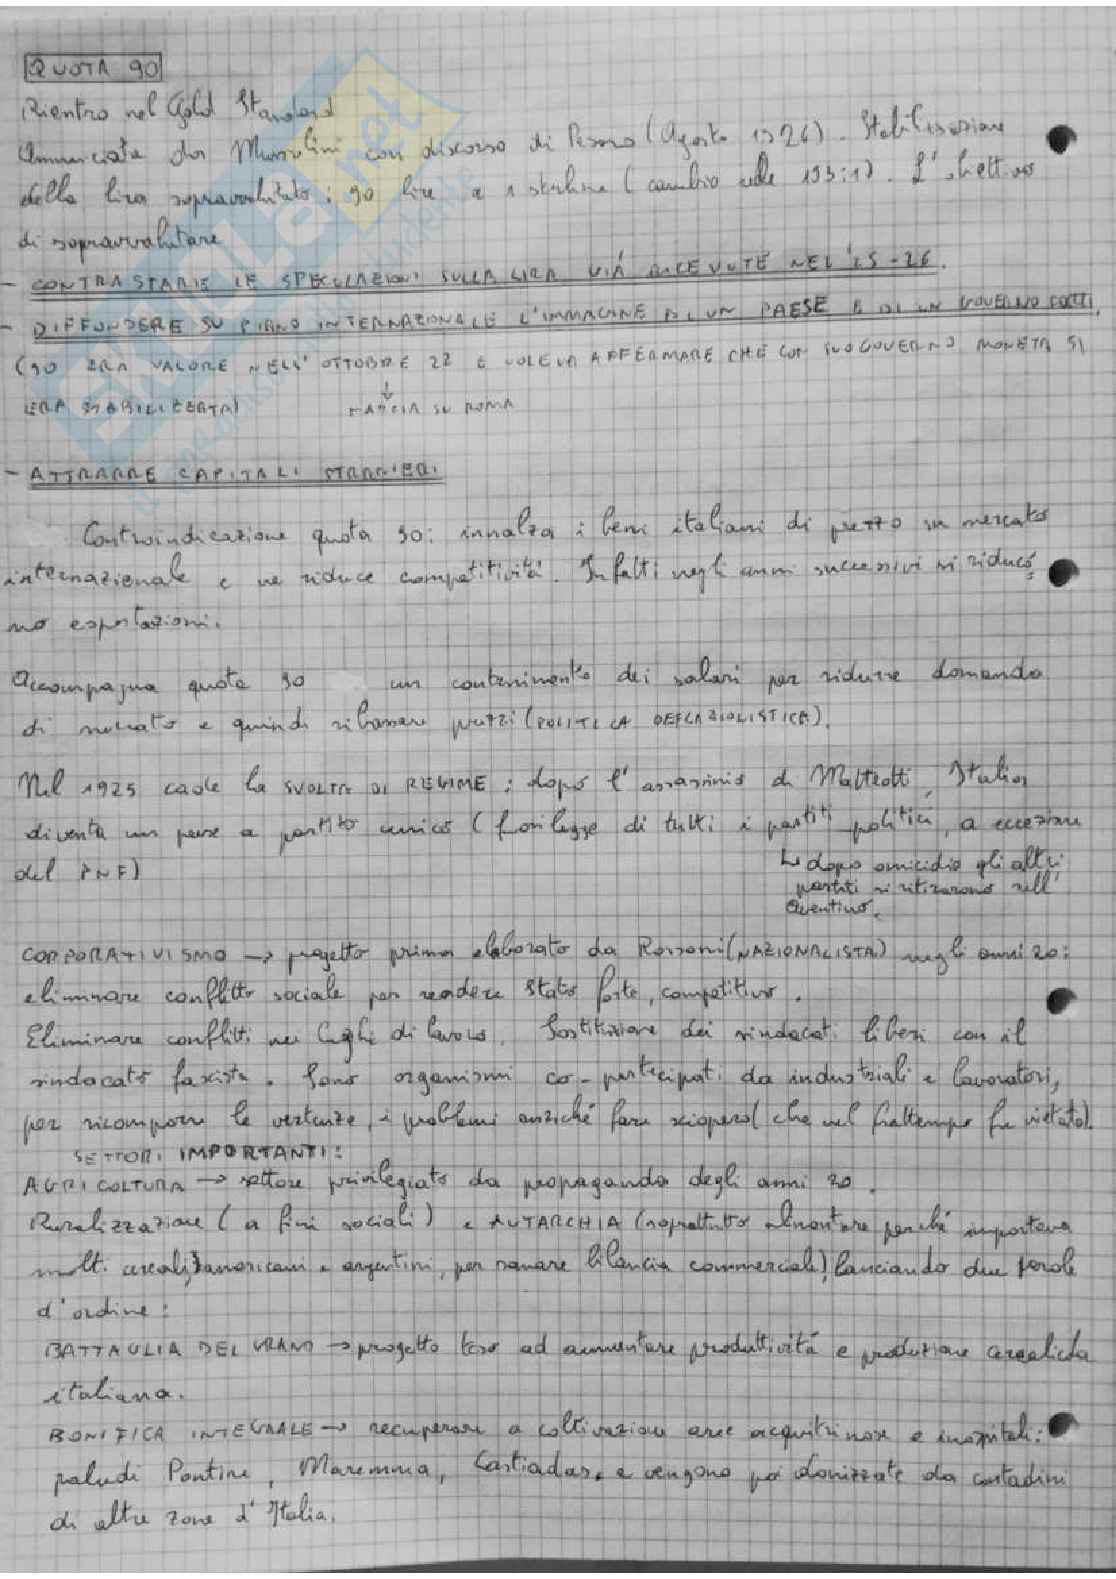 QUOTA 90
Rientro nel Gold Standard
Annunciata da Mussolini con discorso di Pesaro (Agosto 1926). Stabilizzazione
della lira sopravvalutata: 90 lire a 1 sterlina (cambio reale 153:1). L'obettivo
di sopravvalutare
- CONTRASTARE LE SPECULAZIONI SULLA LIRA GIÁ RICEVUTE NEL '25-26.
- DIFFONDERE SU PIANO INTERNAZIONALE L'IMMAGINE DI UN PAESE E DI UN GOVERNO FORTI,
(90 ERA VALORE NELL'OTTOBRE 22 E VOLEVA AFFERMARE CHE CON SUO GOVERNO MONETA SI
ERA STABILIZZATA)
↓
MARCIA SU ROMA
- ATTRARRE CAPITALI STRANIERI
Controindicazione quota 90: innalza i beni italiani di prezzo su mercato
internazionale e ne riduce competitivitá. Infatti negli anni successivi si riduco
no esportazioni.
Accompagna quota 90 un contenimento dei salari per ridurre domanda
di mercato e quindi ribassare prezzi (POLITICA DEFLAZIOLISTICA).
Nel 1925 cade la SVOLTA DI REGIME: dopo l'assassinio di Matteotti, Italia
diventa un paese a partito unico (fuorilegge di tutti i partiti politici, a eccezione
del PNF)
↳ dopo omicidio gli altri
partiti si ritirarono sull'
Aventino.
CORPORATIVISMO → progetto prima elaborato da Rossoni (NAZIONALISTA) negli anni 20:
eliminare conflitto sociale per rendere Stato forte, competitivo.
Eliminare conflitti nei luoghi di lavoro. Sostituzione dei sindacati liberi con il
sindacato fascista. Sono organismi co-partecipati da industriali e lavoratori,
per ricomporre le vertenze, i problemi anziché fare sciopero (che nel frattempo fu vietato).
SETTORI IMPORTANTI:
AGRICOLTURA → settore privilegiato da propaganda degli anni 20.
Ruralizzazione (a fini sociali) e AUTARCHIA (soprattutto alimentare perché importava
molti cereali, americani e argentini, per sanare bilancia commerciale), lanciando due parole
d'ordine:
BATTAGLIA DEL GRANO → progetto teso ad aumentare produttivitá e produzione cerealicola
italiana.
BONIFICA INTEGRALE → recuperare a coltivazione aree acquitrinose e inospitali:
paludi Pontine, Maremma, Castiadas. e vengono poi colonizzate da contadini
di altre zone d'Italia.